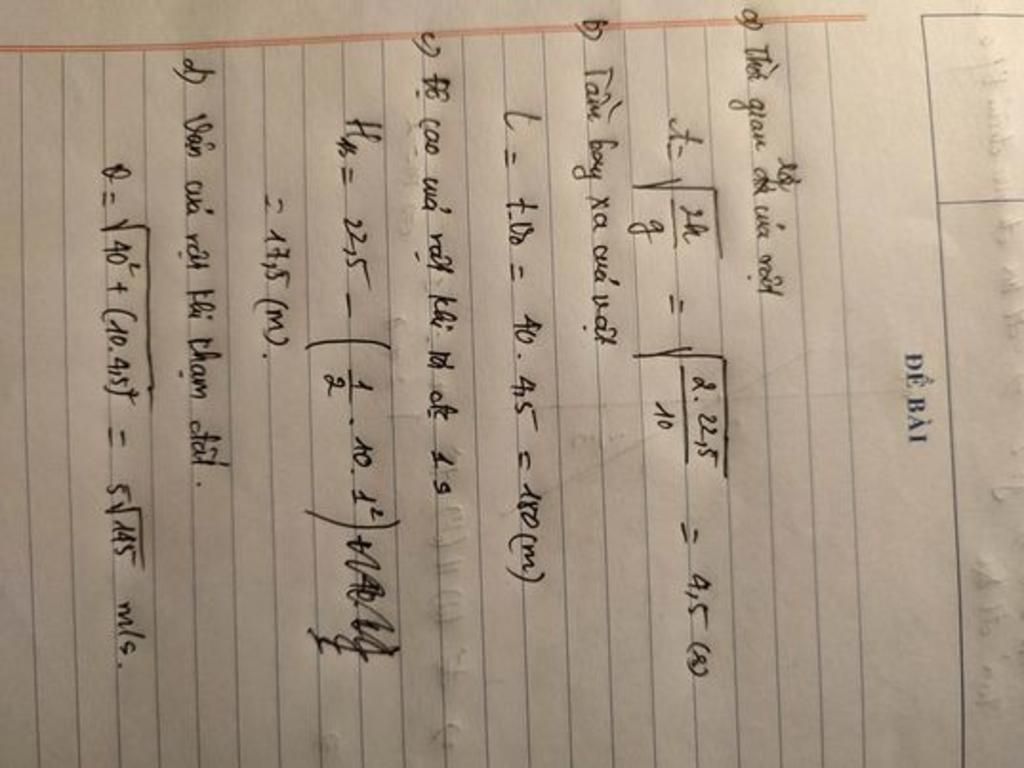 ĐỀ BÀI
a) Thời gian rơi của vật
t = √(2h/g) = √(2.22,5/10) = 4,5 (s)
b) Tầm bay xa của vật
L = t.v₀ = 40 . 4,5 = 180 (m)
c) Độ cao của vật khi rơi đc 1s
H₁ₛ = 22,5 - (1/2 . 10 . 1²)
= 17,5 (m).
d) Vận của vật khi chạm đất.
v = √(40² + (10.4,5)²) = 5√145 m/s.